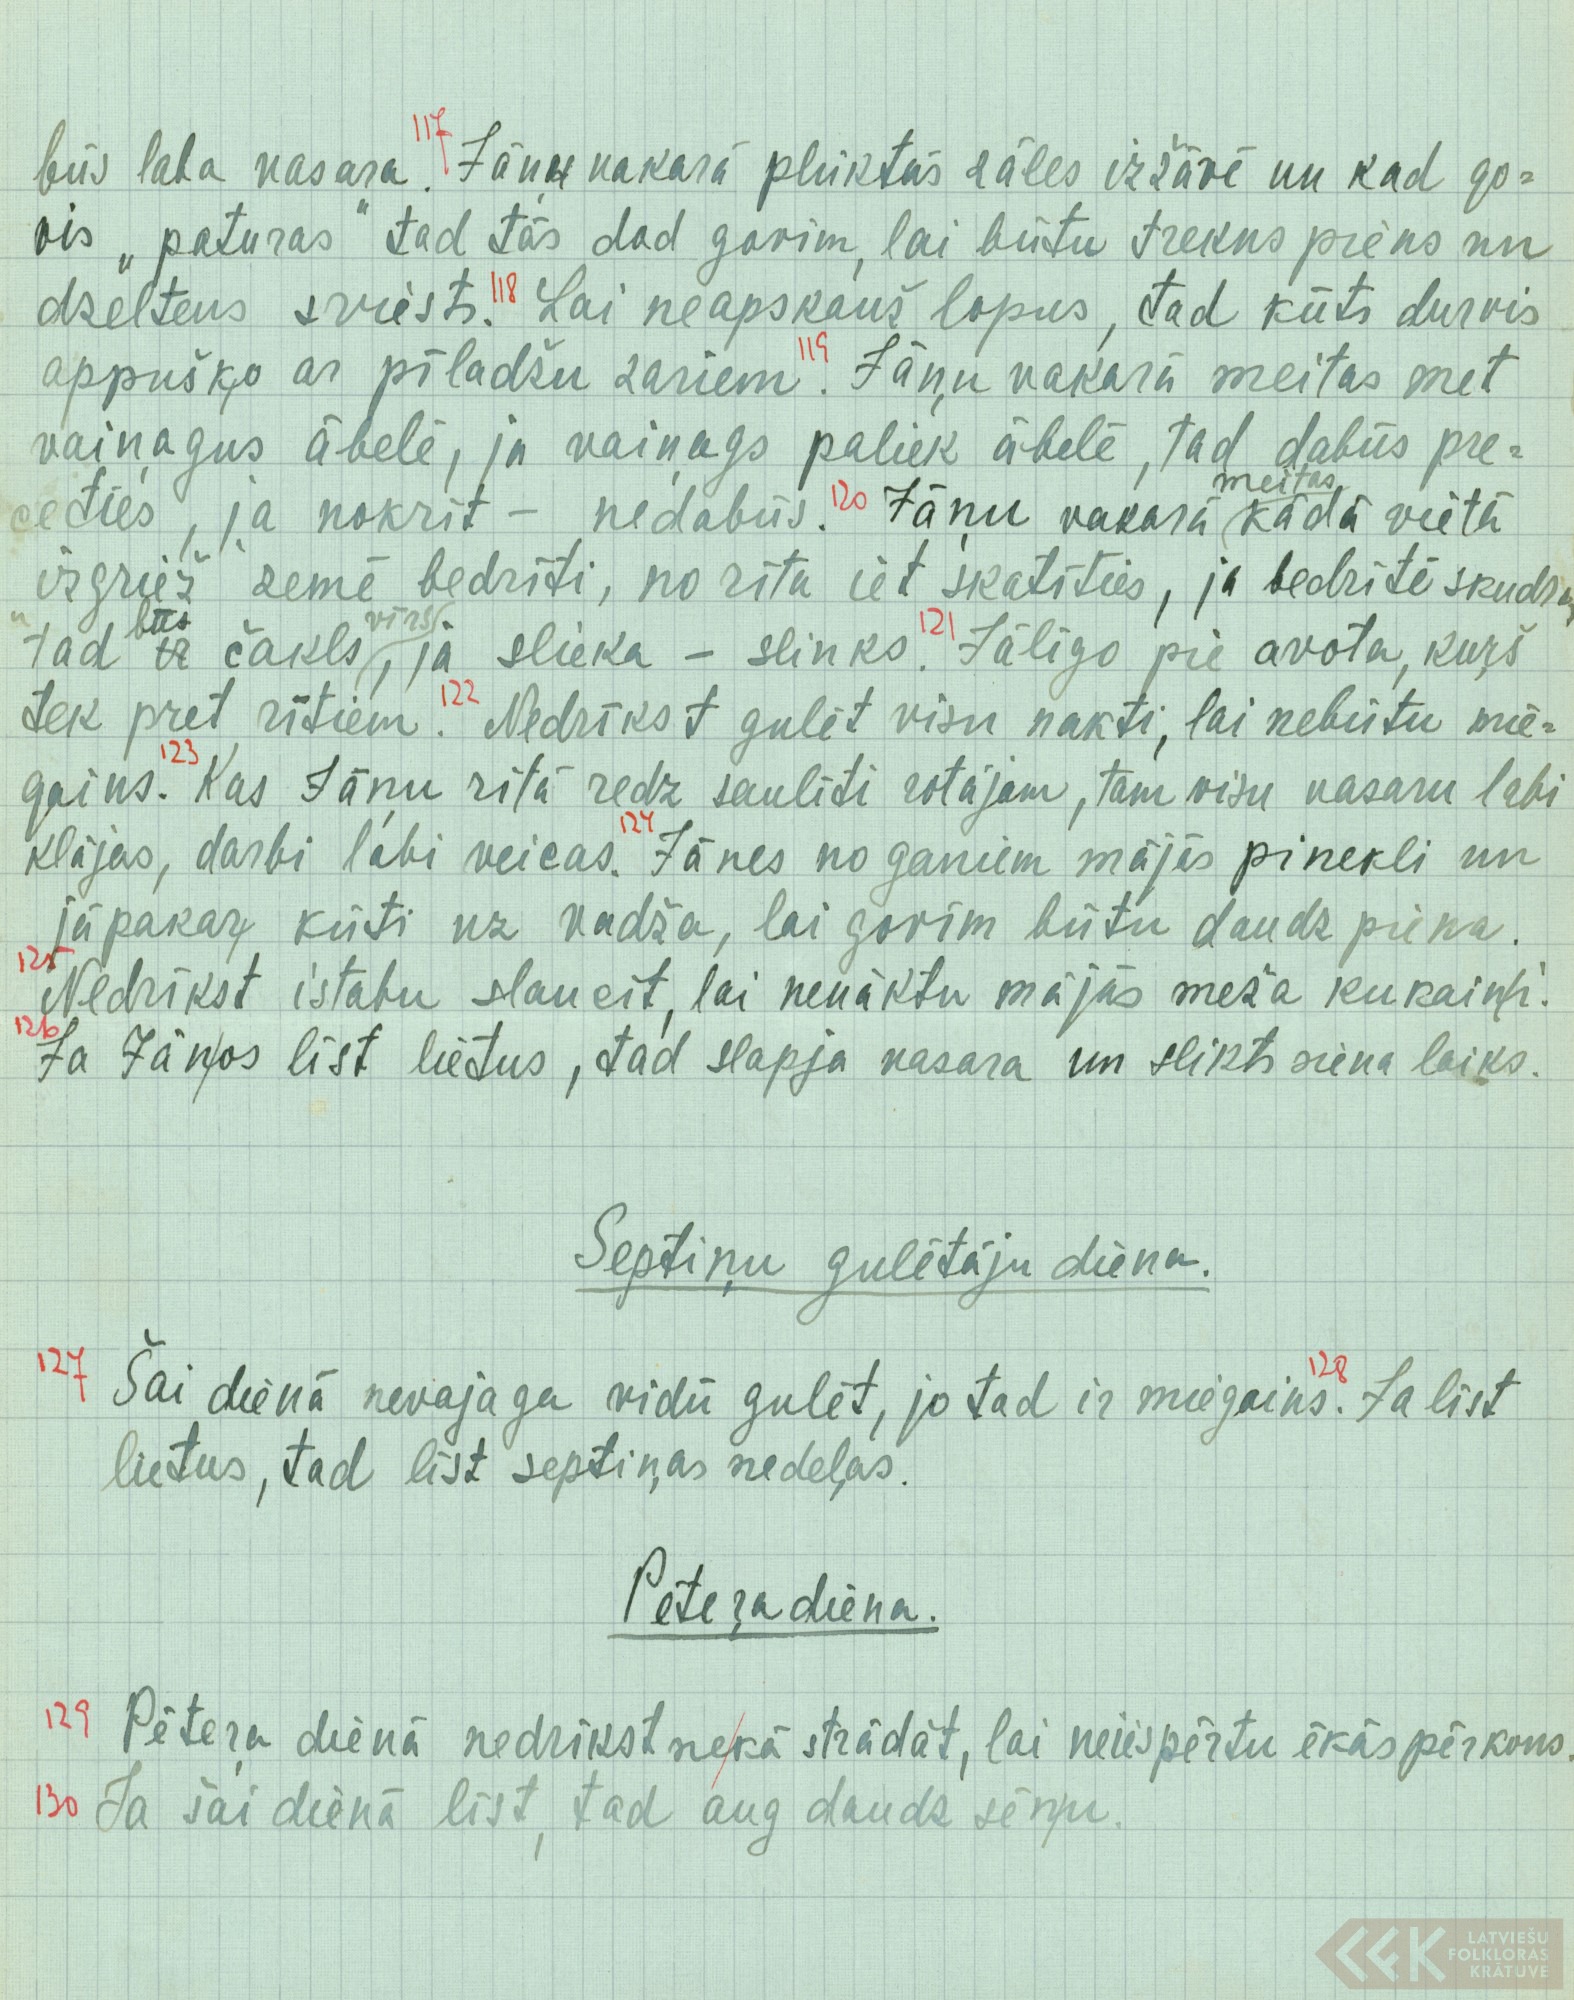 būs laba vasara. 117 Jāņu vakarā plūktās zāles izžāvē un kad go=
vis „paturas" tad tās dod govīm, lai būtu trekns piens un
dzeltens sviests. 118 Lai neapskauž lopus, tad kūts durvis
appušķo ar pīladžu zariem. 119 Jāņu vakarā meitas met
vaiņagus ābelē, ja vaiņags paliek ābelē, tad dabūs pre=
cēties, ja nokrīt – nedabūs. 120 Jāņu vakarā meitas kādā vietā
izgriež zemē bedrīti, no rīta iet skatīties, ja bedrītē skudra,
tad būs čakls vīrs, ja slieka – slinks. 121 Jālīgo pie avota, kuŗš
tek pret rītiem. 122 Nedrīkst gulēt visu nakti, lai nebūtu mie=
gains. 123 Kas Jāņu rītā redz saulīti rotājam, tam visu vasaru labi
klājas, darbi labi veicas. 124 Jānes no ganiem mājās pinekli un
jāpakaŗ kūtī uz vadža, lai govīm būtu daudz piena.
125 Nedrīkst istabu slaucīt, lai nenāktu mājās meža kukaiņi.
126 Ja Jāņos līst lietus, tad slapja vasara un slikts siena laiks.
Septiņu gulētāju diena.
127 Šai dienā nevajaga vidū gulēt, jo tad ir miegains. 128 Ja līst
lietus, tad līst septiņas nedeļas.
Pēteŗa diena.
129 Pēteŗa dienā nedrīkst nekā strādāt, lai neiespērtu ēkās pērkons.
130 Ja šai dienā līst, tad aug daudz sēņu.
LATVIEŠU
FOLKLORAS
KRĀTUVE